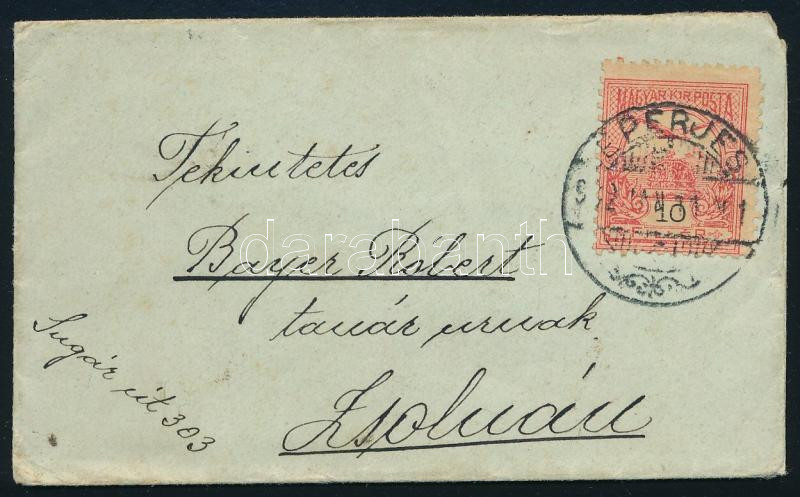 MAGYAR KIR. POSTA
EPERJES
10
Tekintetes
Bayer Róbert
tanár urnak
Zsolnán
Sugár út 303
darabanth